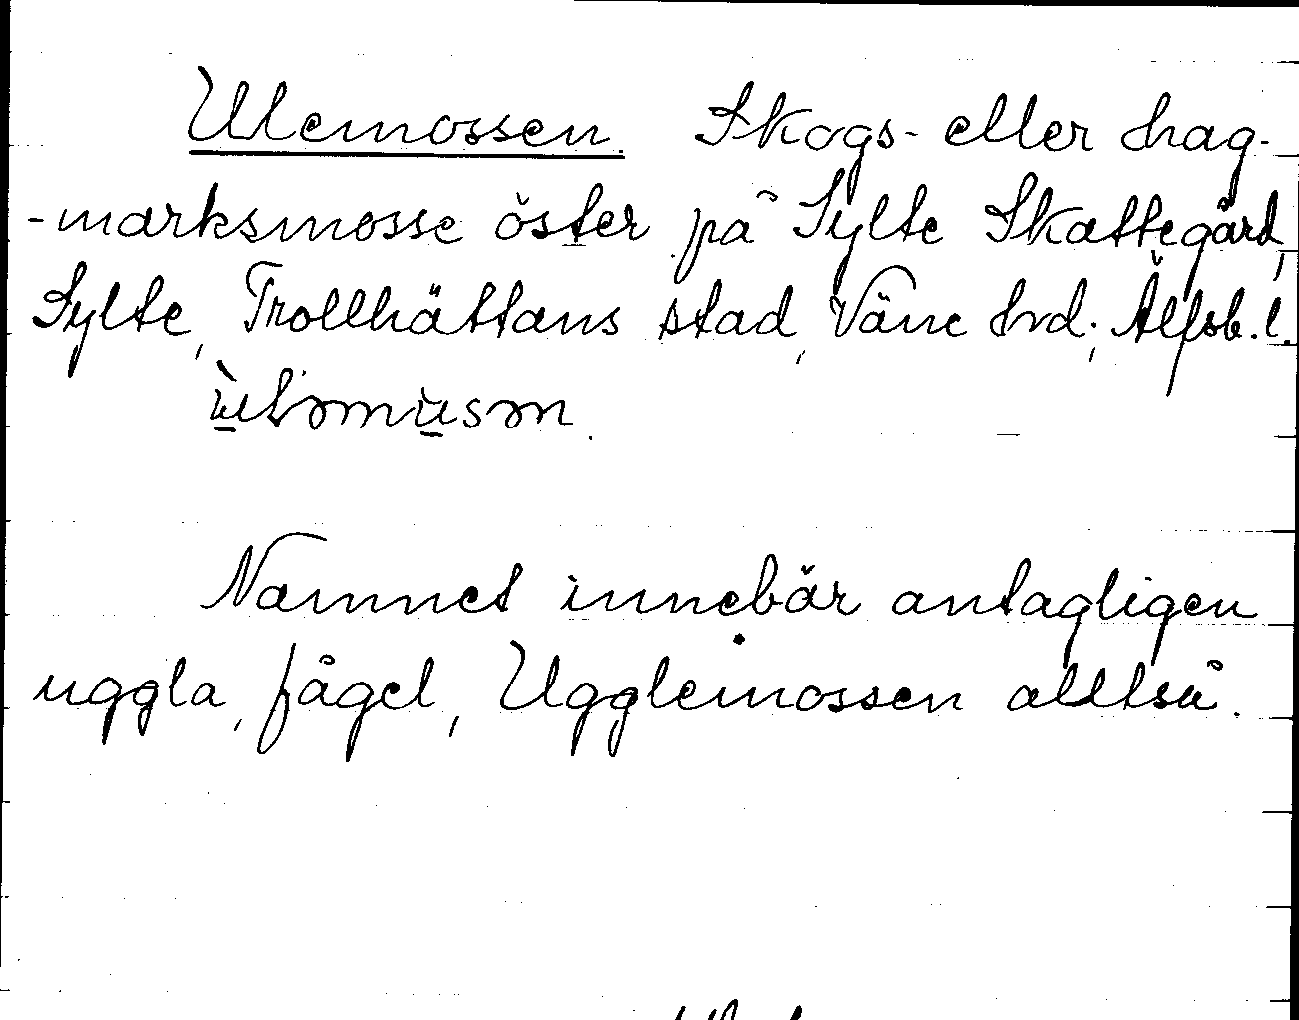 Ulemossen. Skogs- eller hag-
-marksmosse öster på Sylte Skattegård,
Sylte, Trollhättans stad, Väne hrd; Älfsb. l.
Namnet innebär antagligen
uggla, fågel, Ugglemossen alltså.